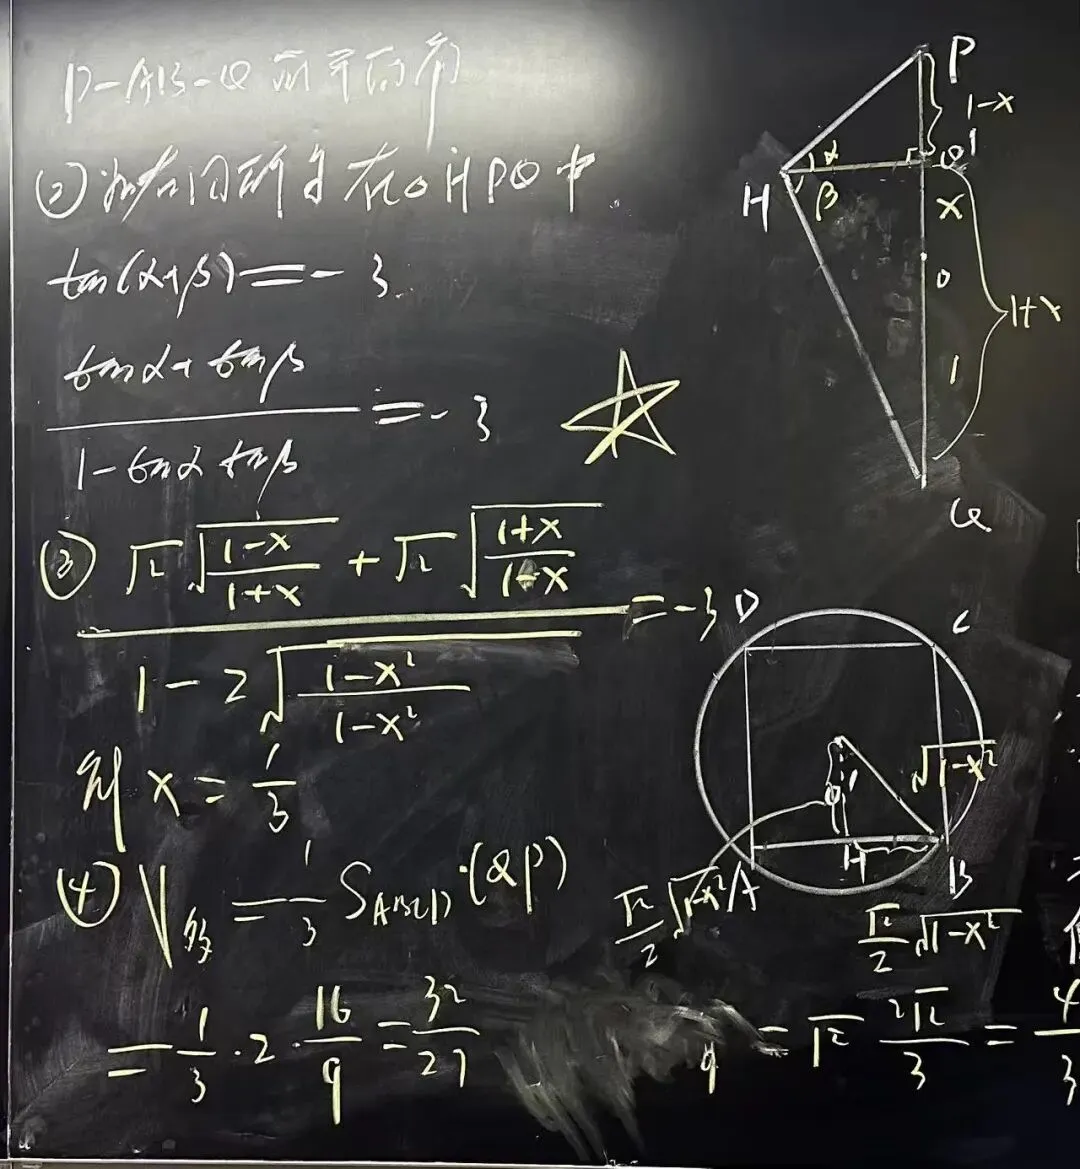 P-AB-Q 的平面角
② 如右图所示 在△HPQ中
tan(α+β)=-3
(tanα+tanβ)/(1-tanα tanβ) = -3
③ (√2 √((1-x)/(1+x)) + √2 √((1+x)/(1-x)))/(1-2√((1-x²)/(1-x²))) = -3
则 x = 1/3
④ V多 = 1/3 S_ABCD·(QP)
= 1/3 · 2 · 16/9 = 32/27
P
1-x
H
α
β
O'
x
O
1
1+x
Q
D
C
√(1-x²)
O'
H
A
B
√2/2 √(1-x²)
√2/2 √(1-x²)
9 = √2 2√2/3 = 4/3